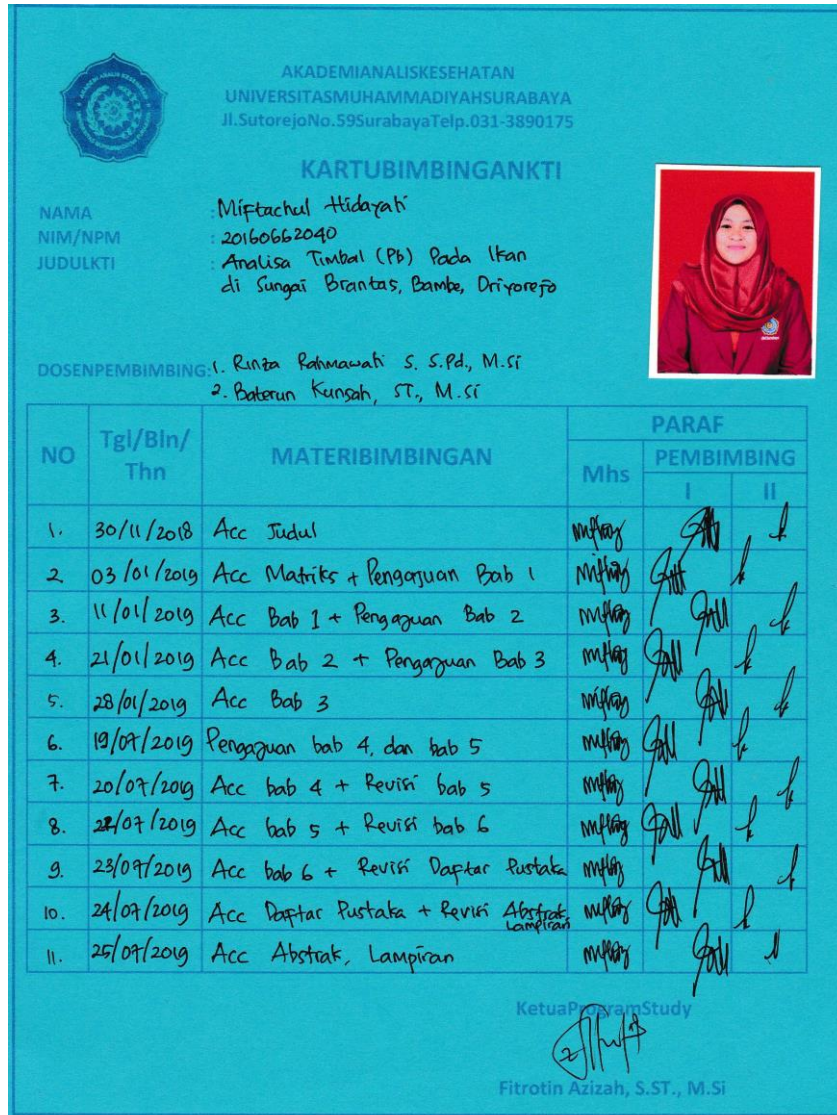 AKADEMIANALISKESEHATAN
UNIVERSITASMUHAMMADIYAHSURABAYA
Jl.SutorejoNo.59SurabayaTelp.031-3890175
KARTUBIMBINGANKTI
NAMA : Miftachul Hidayati
NIM/NPM : 20160662040
JUDULKTI : Analisa Timbal (Pb) Pada Ikan
di Sungai Brantas, Bambe, Driyorejo
DOSENPEMBIMBING: 1. Rinza Rahmawati S. S.Pd., M.Si
2. Baterun Kunsah, ST., M.Si
NO Tgl/Bln/Thn MATERIBIMBINGAN PARAF
Mhs PEMBIMBING
I II
1. 30/11/2018 Acc Judul
2. 03/01/2019 Acc Matriks + Pengajuan Bab 1
3. 11/01/2019 Acc Bab 1 + Pengajuan Bab 2
4. 21/01/2019 Acc Bab 2 + Pengajuan Bab 3
5. 28/01/2019 Acc Bab 3
6. 19/07/2019 Pengajuan bab 4, dan bab 5
7. 20/07/2019 Acc bab 4 + Revisi bab 5
8. 22/07/2019 Acc bab 5 + Revisi bab 6
9. 23/07/2019 Acc bab 6 + Revisi Daftar Pustaka
10. 24/07/2019 Acc Daftar Pustaka + Revisi Abstrak, Lampiran
11. 25/07/2019 Acc Abstrak, Lampiran
KetuaProgramStudy
Fitrotin Azizah, S.ST., M.Si